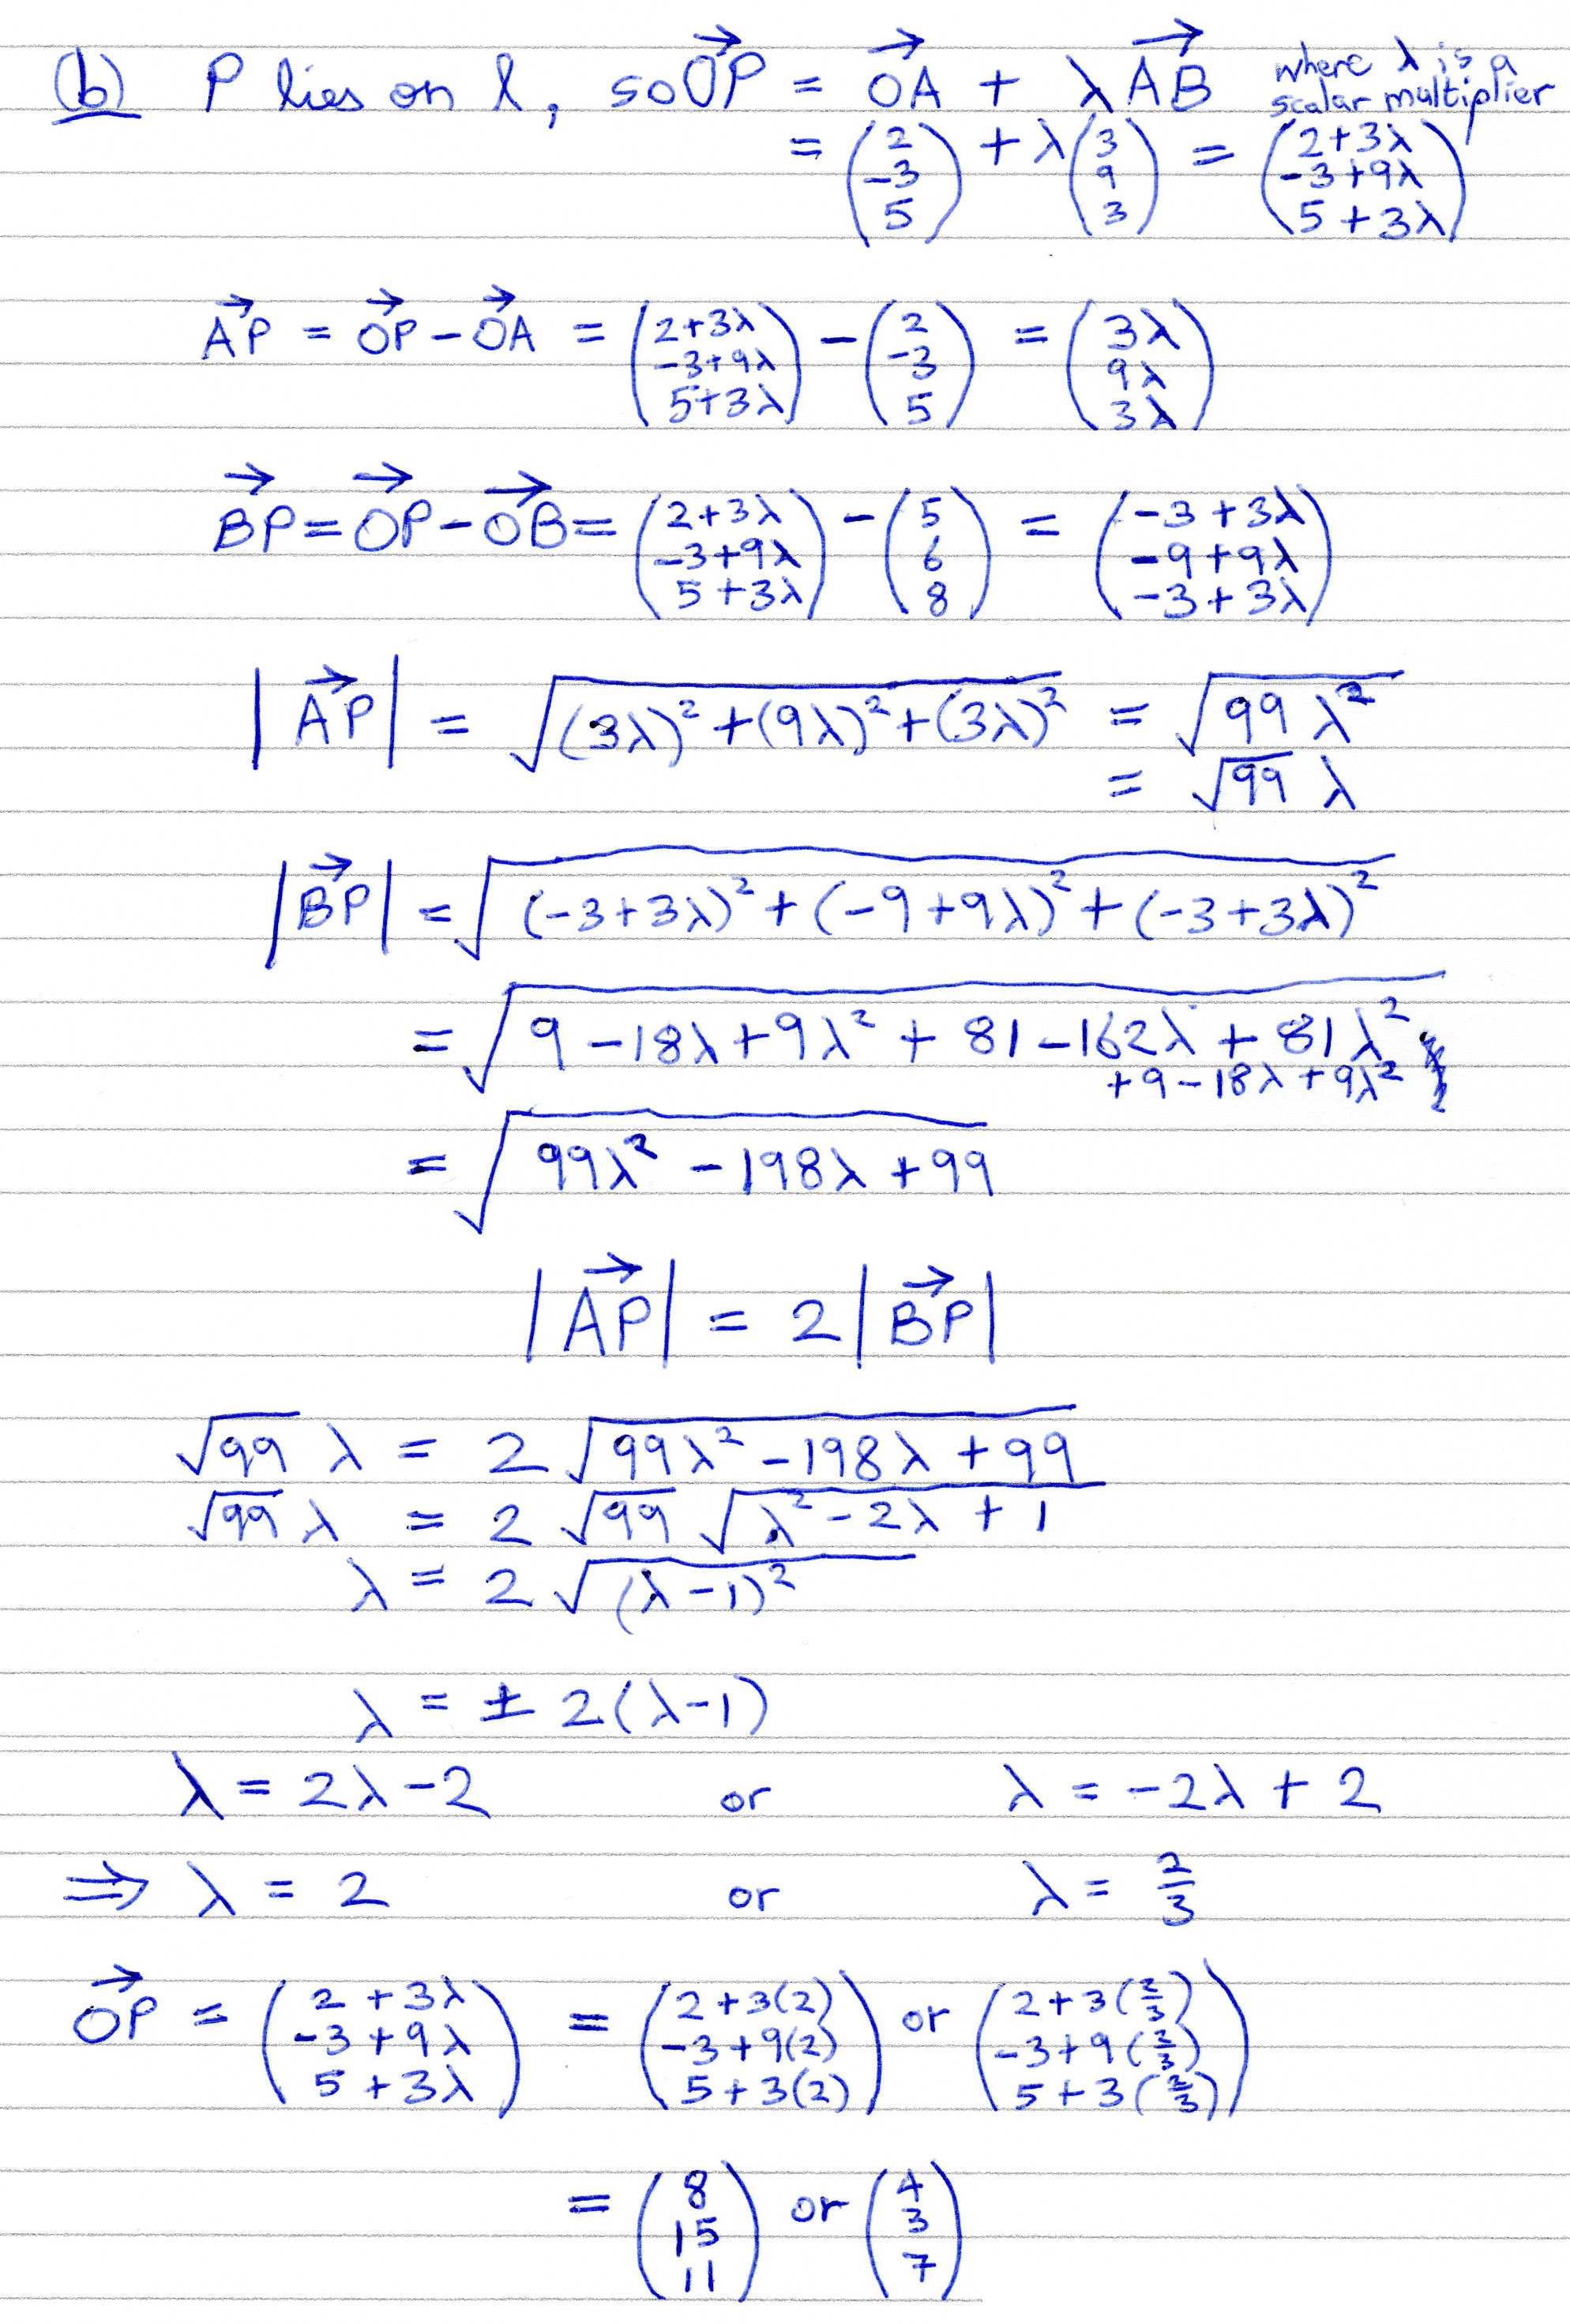 (b) P lies on l, so OP⃗ = OA⃗ + λ AB⃗ where λ is a scalar multiplier
= (2, -3, 5) + λ (3, 9, 3) = (2+3λ, -3+9λ, 5+3λ)
AP⃗ = OP⃗ - OA⃗ = (2+3λ, -3+9λ, 5+3λ) - (2, -3, 5) = (3λ, 9λ, 3λ)
BP⃗ = OP⃗ - OB⃗ = (2+3λ, -3+9λ, 5+3λ) - (5, 6, 8) = (-3+3λ, -9+9λ, -3+3λ)
|AP⃗| = √((3λ)² + (9λ)² + (3λ)²) = √(99 λ²)
= √99 λ
|BP⃗| = √((-3+3λ)² + (-9+9λ)² + (-3+3λ)²)
= √(9 - 18λ + 9λ² + 81 - 162λ + 81λ²
+ 9 - 18λ + 9λ²)
= √(99λ² - 198λ + 99)
|AP⃗| = 2 |BP⃗|
√99 λ = 2 √(99λ² - 198λ + 99)
√99 λ = 2 √99 √(λ² - 2λ + 1)
λ = 2 √((λ-1)²)
λ = ± 2(λ-1)
λ = 2λ - 2 or λ = -2λ + 2
⇒ λ = 2 or λ = 2/3
OP⃗ = (2+3λ, -3+9λ, 5+3λ) = (2+3(2), -3+9(2), 5+3(2)) or (2+3(2/3), -3+9(2/3), 5+3(2/3))
= (8, 15, 11) or (4, 3, 7)